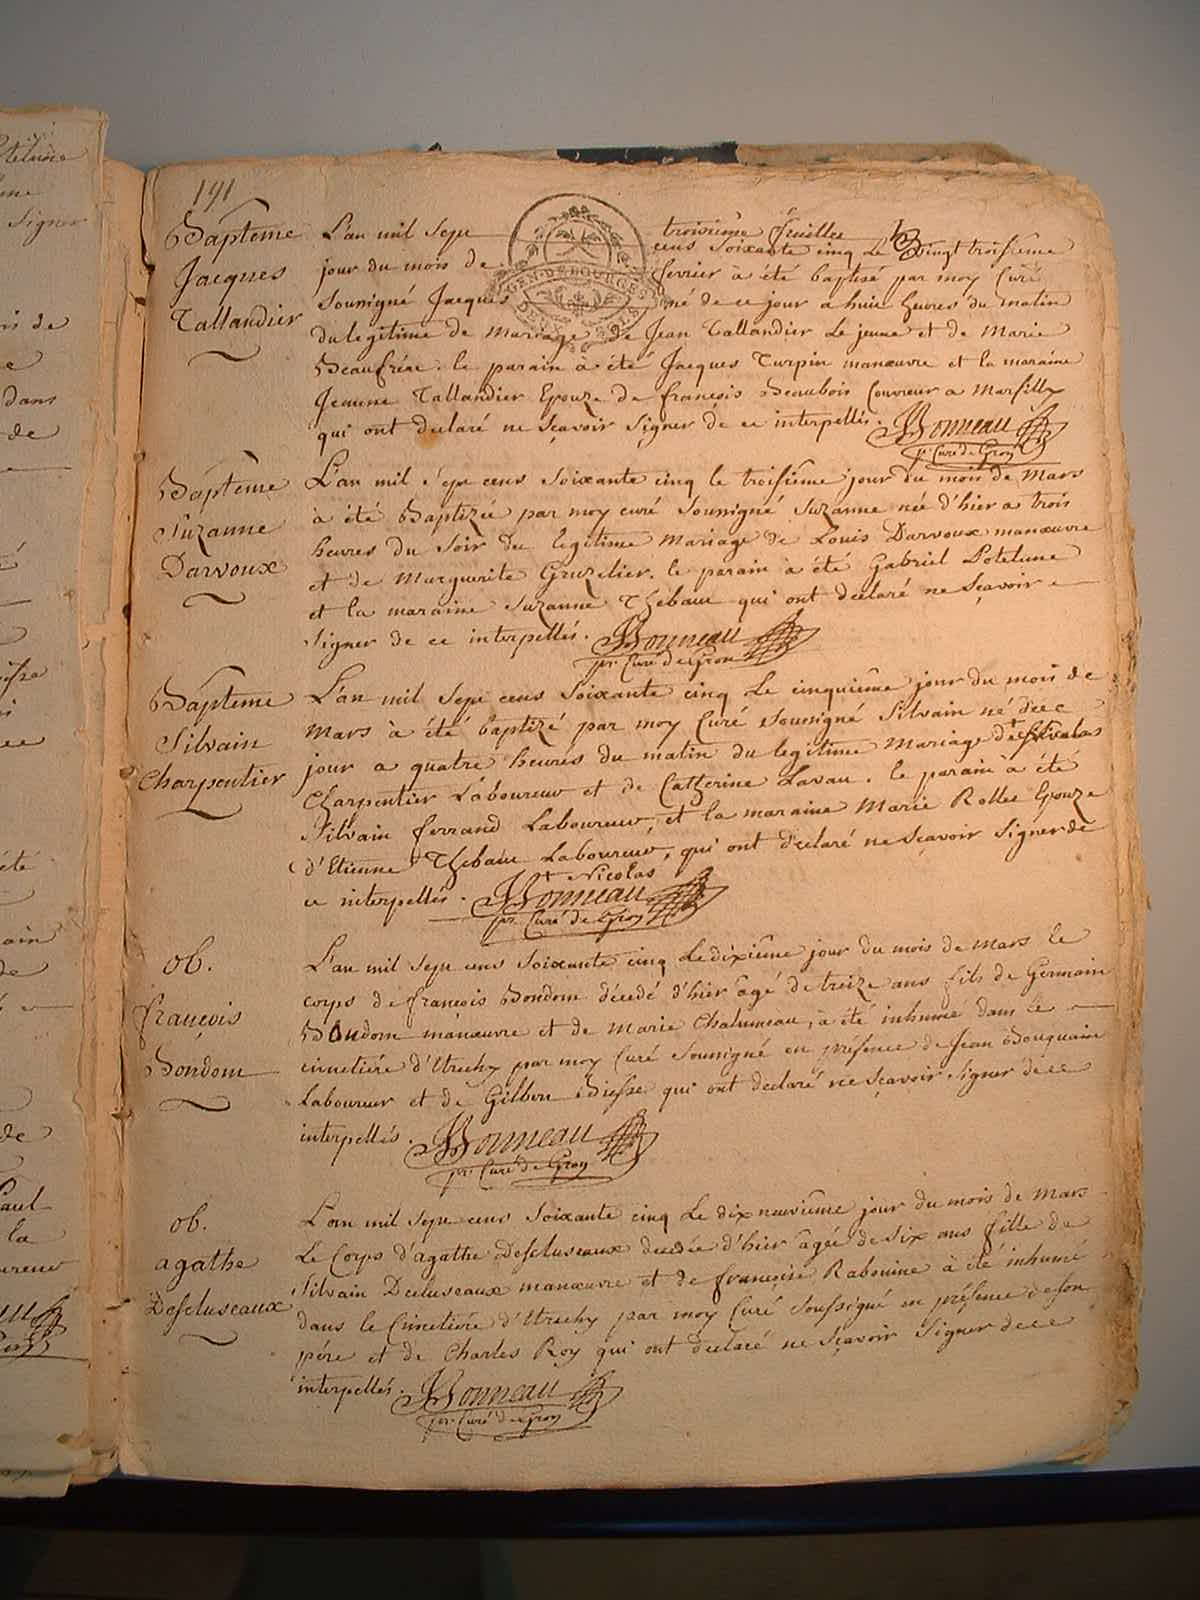 191
troisième feuillee
Bapteme
Jacques
Tallandier
L'an mil sept cens soixante cinq le vingt troisième
jour du mois de fevrier à été baptisé par moy Curé
soussigné Jacques né de ce jour a huit heures du matin
du legitime de mariage de Jean Tallandier Le jeune et de Marie
Beaufrére. le parain à été Jacques Turpin manœuvre et la maraine
Jeanne Tallandier Epouze de françois Beaubois Couvreur a Marsilly
qui ont declaré ne sçavoir signer de ce interpellés. Bonneau
pr. Curé de Gron
GEN. DE BOURGES
Baptême
Suzanne
Darvoux
L'an mil sept cens soixante cinq le troisiéme jour du mois de Mars
à été Baptizée par moy curé soussigné Suzanne née d'hier a trois
heures du soir du legitime mariage de Louis Darvoux manœuvre
et de Marguerite Gruzelier. le parain à été Gabriel Potelune
et la maraine Suzanne Thébaut qui ont declaré ne sçavoir
signer de ce interpellés. Bonneau
pr. Curé de Gron
Baptême
Silvain
Charpentier
L'an mil sept cens soixante cinq Le cinquiéme jour du mois de
Mars à été baptizé par moy Curé soussigné Silvain né de ce
jour a quatre heures du matin du legitime mariage de +
Charpentier Laboureur et de Catherine Lavau. le parain à été
Silvain ferrand Laboureur, et la maraine Marie Rollet Epouze
d'Etienne Thebaut Laboureur, qui ont declaré ne sçavoir signer de
ce interpellés. + Nicolas
Bonneau
pr. Curé de Gron
ob.
françois
Bondom
L'an mil sept cens soixante cinq Le dixième jour du mois de Mars le
corps de françois Bondom décedé d'hier agé de treize ans fils de Germain
Bondom manœuvre et de Marie Chalumeau, à été inhumé dans le
cimetiére d'Utrechy par moy Curé soussigné en présence de Jean Bouquain
Laboureur et de Gilbert Biesse qui ont declaré ne sçavoir signer de ce
interpellés. Bonneau
pr. Curé de Gron
ob.
agathe
Descluseaux
L'an mil sept cens soixante cinq Le dix neuviéme jour du mois de Mars
Le Corps d'agathe Descluseaux decedée d'hier agée de six ans fille de
Silvain Decluseaux manœuvre et de françoise Rabouine à été inhumé
dans le Cimetiére d'Utrechy par moy Curé soussigné en présence de son
pére et de Charles Roy qui ont declaré ne sçavoir signer de ce
interpellés. Bonneau
pr. Curé de Gron